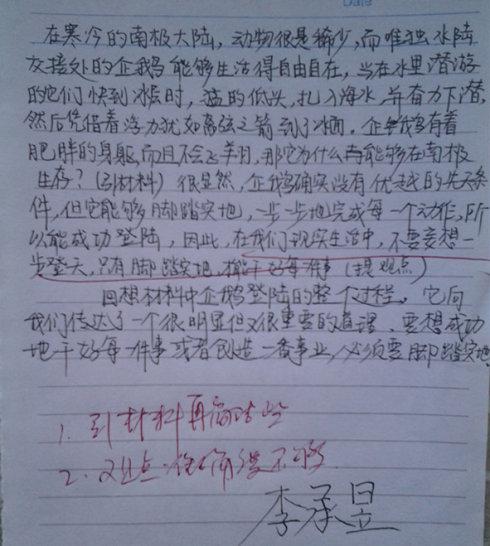 Date
在寒冷的南极大陆，动物很是稀少，而唯独水陆
交接处的企鹅能够生活得自由自在，当在水里潜游
的它们快到冰层时，猛的低头，扎入海水，并奋力下潜，
然后凭借着浮力犹如离弦之箭到了冰面。企鹅有着
肥胖的身躯，而且不会飞翔，那它为什么而能够在南极
生存？（引材料）很显然，企鹅确实没有优越的先天条
件，但它能够脚踏实地，一步一步地完成每一个动作，所
以能成功登陆，因此，在我们现实生活中，不要妄想一
步登天，只有脚踏实地，才能干好每件事（提观点）
回想材料中企鹅登陆的整个过程，它向
我们传达了一个很明显但又很重要的道理，要想成功
地干好每一件事或者创造一番事业，必须要脚踏实地
1. 引材料再简洁些
2. 对观点
李承昱